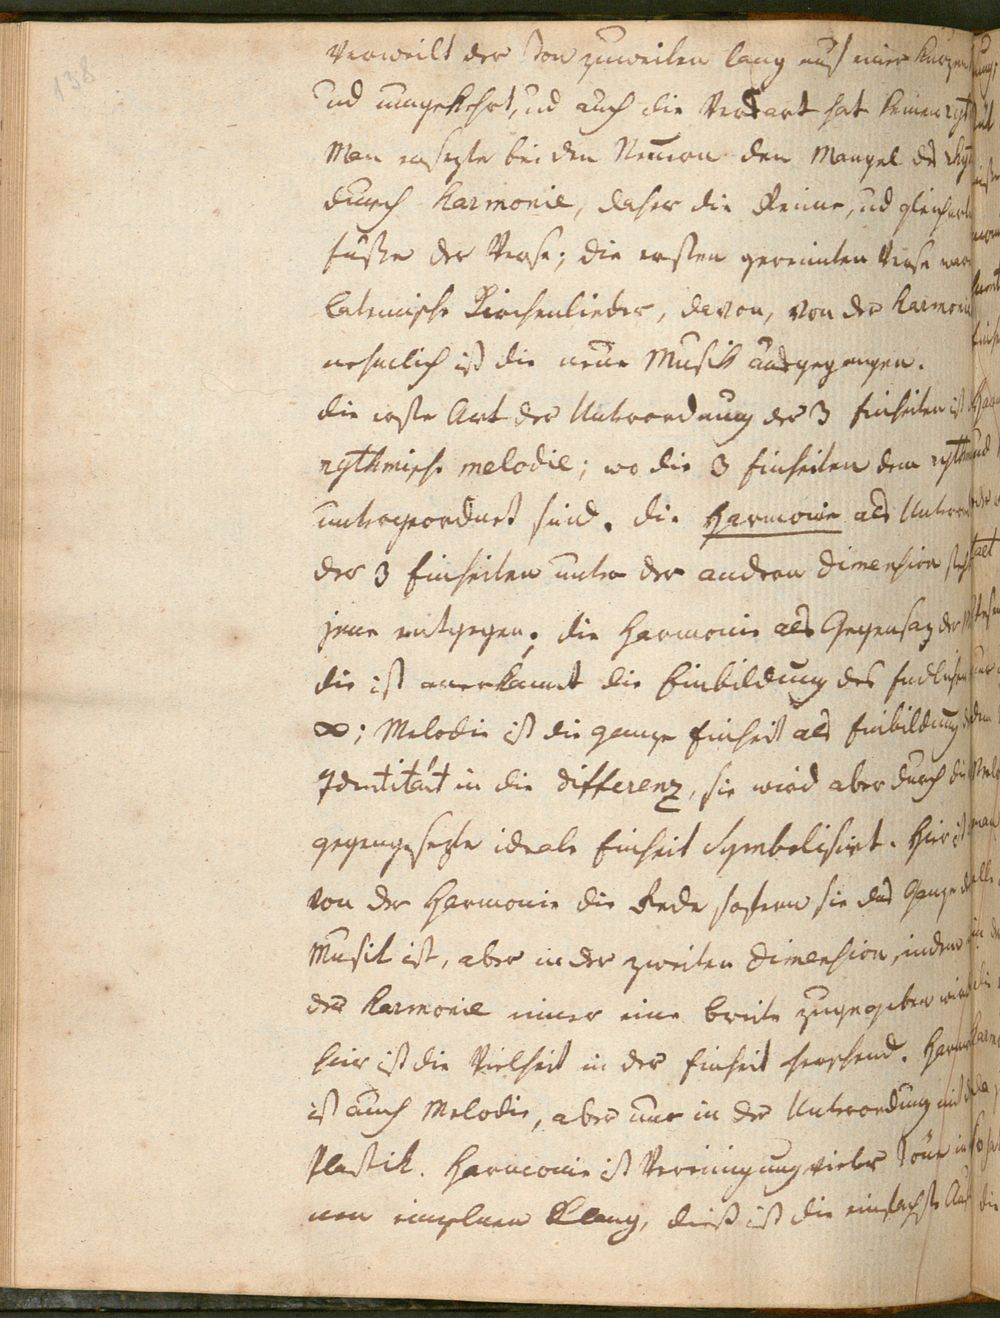 138
Verweilt der Ton zuweilen lang auf einer kurzen
und umgekehrt, und auch die Versart hat keinen
Man ersezte bei den Neuern den Mangel des
durch Harmonie, daher die Reime, und
füße der Verse; die ersten gereimten Verse waren
lateinische Kirchenlieder, davon, von der Harmonie
nehmlich ist die neue Musik ausgegangen.
die erste Art der Unterordnung der 3 Einheiten ist
rythmische melodie; wo die 3 Einheiten dem
untergeordnet sind. die Harmonie als
der 3 Einheiten unter der andern Dimension steht
jener entgegen; die Harmonie als Gegensaz der
die ist anerkannt die Einbildung des Endlichen
∞; Melodie ist die ganze Einheit als Einbildung der
Identität in die differenz, sie wird aber durch die
gegengesezte ideale Einheit Symbolisirt. Hier ist
von der Harmonie die Rede sofern sie das Ganze der
Musik ist, aber in der zweiten Dimension, indem
der Harmonie immer eine breite zugegeben wird
hier ist die Vielheit in der Einheit herschend.
ist auch Melodie, aber nur in der Unterordnung mit
Plastik. Harmonie ist Vereinigung vieler Töne in
nen einzelnen Klang, dieß ist die einfachste